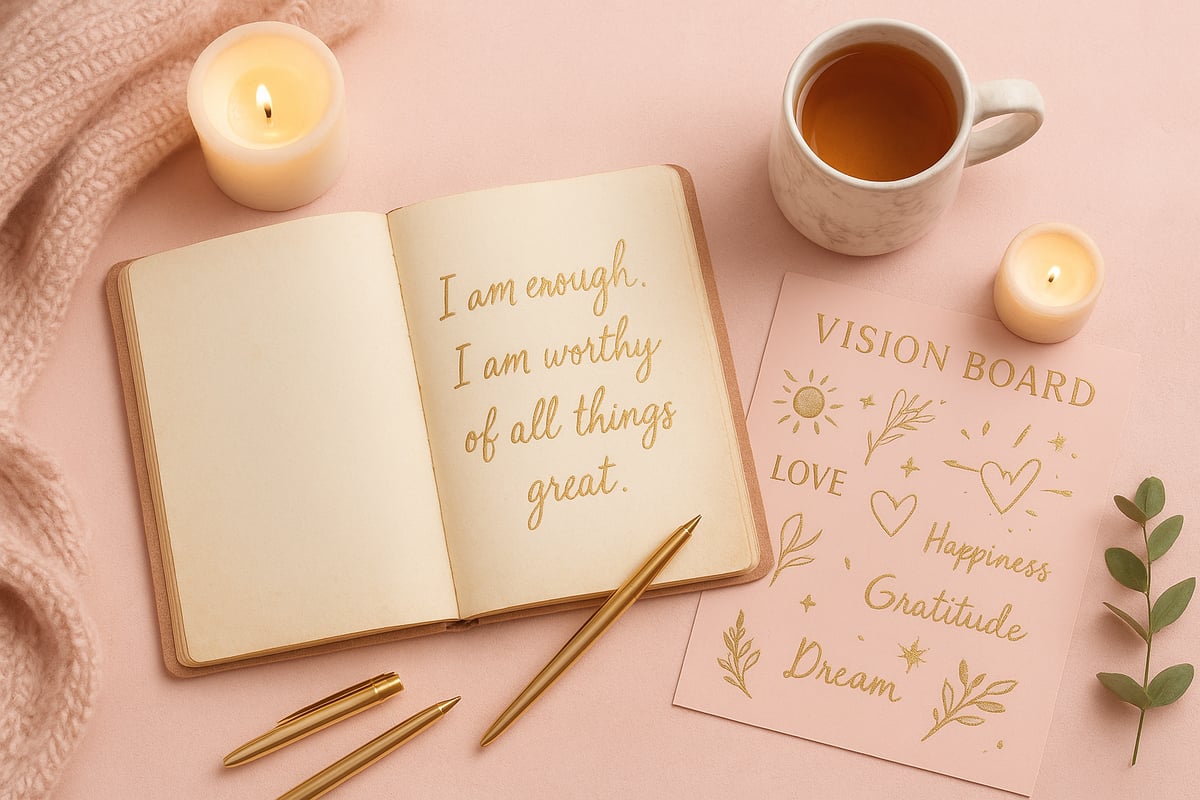 I am enough.
I am worthy
of all things
great.
VISION BOARD
LOVE
Happiness
Gratitude
Dream